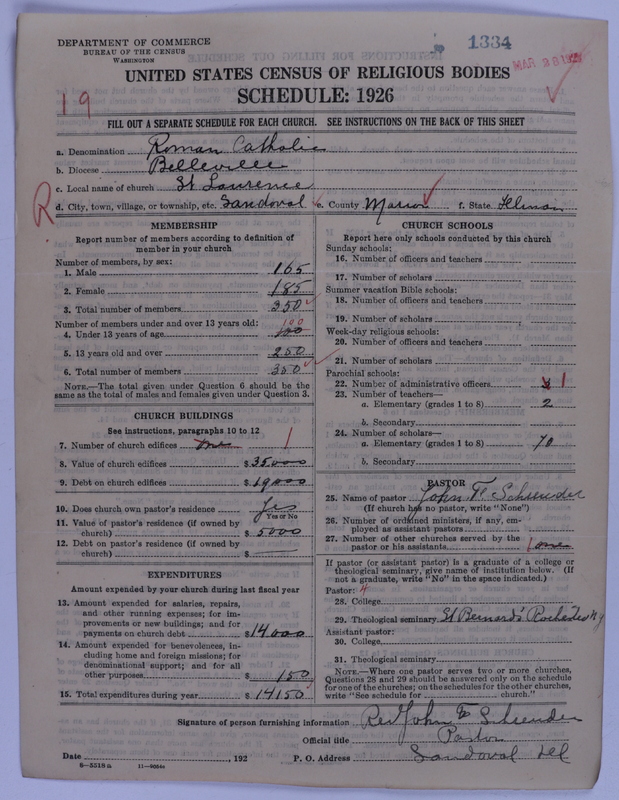 DEPARTMENT OF COMMERCE
BUREAU OF THE CENSUS
WASHINGTON
1334
MAR 28
UNITED STATES CENSUS OF RELIGIOUS BODIES
SCHEDULE: 1926
19
FILL OUT A SEPARATE SCHEDULE FOR EACH CHURCH. SEE INSTRUCTIONS ON THE BACK OF THIS SHEET
a. Denomination Roman Catholic
b. Diocese Belleville
c. Local name of church St Laurence
d. City, town, village, or township, etc. Sandoval e. County Marion f. State Illinois
R
MEMBERSHIP
Report number of members according to definition of
member in your church
Number of members, by sex:
1. Male 165
2. Female 185
3. Total number of members 350
Number of members under and over 13 years old:
4. Under 13 years of age 100 100
5. 13 years old and over 250
6. Total number of members 350
NOTE.—The total given under Question 6 should be
same as the total of males and females given under Question 3.
CHURCH BUILDINGS
See instructions, paragraphs 10 to 12
7. Number of church edifices one 1
8. Value of church edifices $ 35000
9. Debt on church edifices $ 19000
10. Does church own pastor's residence? Yes
Yes or No
11. Value of pastor's residence (if owned by
church) $ 5000
12. Debt on pastor's residence (if owned by
church) $
EXPENDITURES
Amount expended by your church during last fiscal year
13. Amount expended for salaries, repairs,
and other running expenses; for im-
provements or new buildings; and for
payments on church debt $ 14000
14. Amount expended for benevolences, in-
cluding home and foreign missions; for
denominational support; and for all
other purposes $ 150
15. Total expenditures during year $ 14150
CHURCH SCHOOLS
Report here only schools conducted by this church
Sunday schools:
16. Number of officers and teachers
17. Number of scholars
Summer vacation Bible schools:
18. Number of officers and teachers
19. Number of scholars
Week-day religious schools:
20. Number of officers and teachers
21. Number of scholars
Parochial schools:
22. Number of administrative officers 1
23. Number of teachers—
a. Elementary (grades 1 to 8) 2
b. Secondary
24. Number of scholars—
a. Elementary (grades 1 to 8) 70
b. Secondary
PASTOR
25. Name of pastor John F. Schueder
(If church has no pastor, write "None")
26. Number of ordained ministers, if any, em-
ployed as assistant pastors
27. Number of other churches served by the
pastor or his assistants 1 one
If pastor (or assistant pastor) is a graduate of a college or
theological seminary, give name of institution below. (If
not a graduate, write "No" in the space indicated.)
Pastor: 4
28. College
29. Theological seminary St Bernards' Rochester NY
Assistant pastor:
30. College
31. Theological seminary
NOTE.—Where one pastor serves two or more churches,
Questions 28 and 29 should be answered only on the schedule
for one of the churches; on the schedules for the other churches,
write "See schedule for church."
Signature of person furnishing information Rev John F Schueder
Official title Pastor
Date , 192 P. O. Address Sandoval Ill
8—5518 a 11—9654c